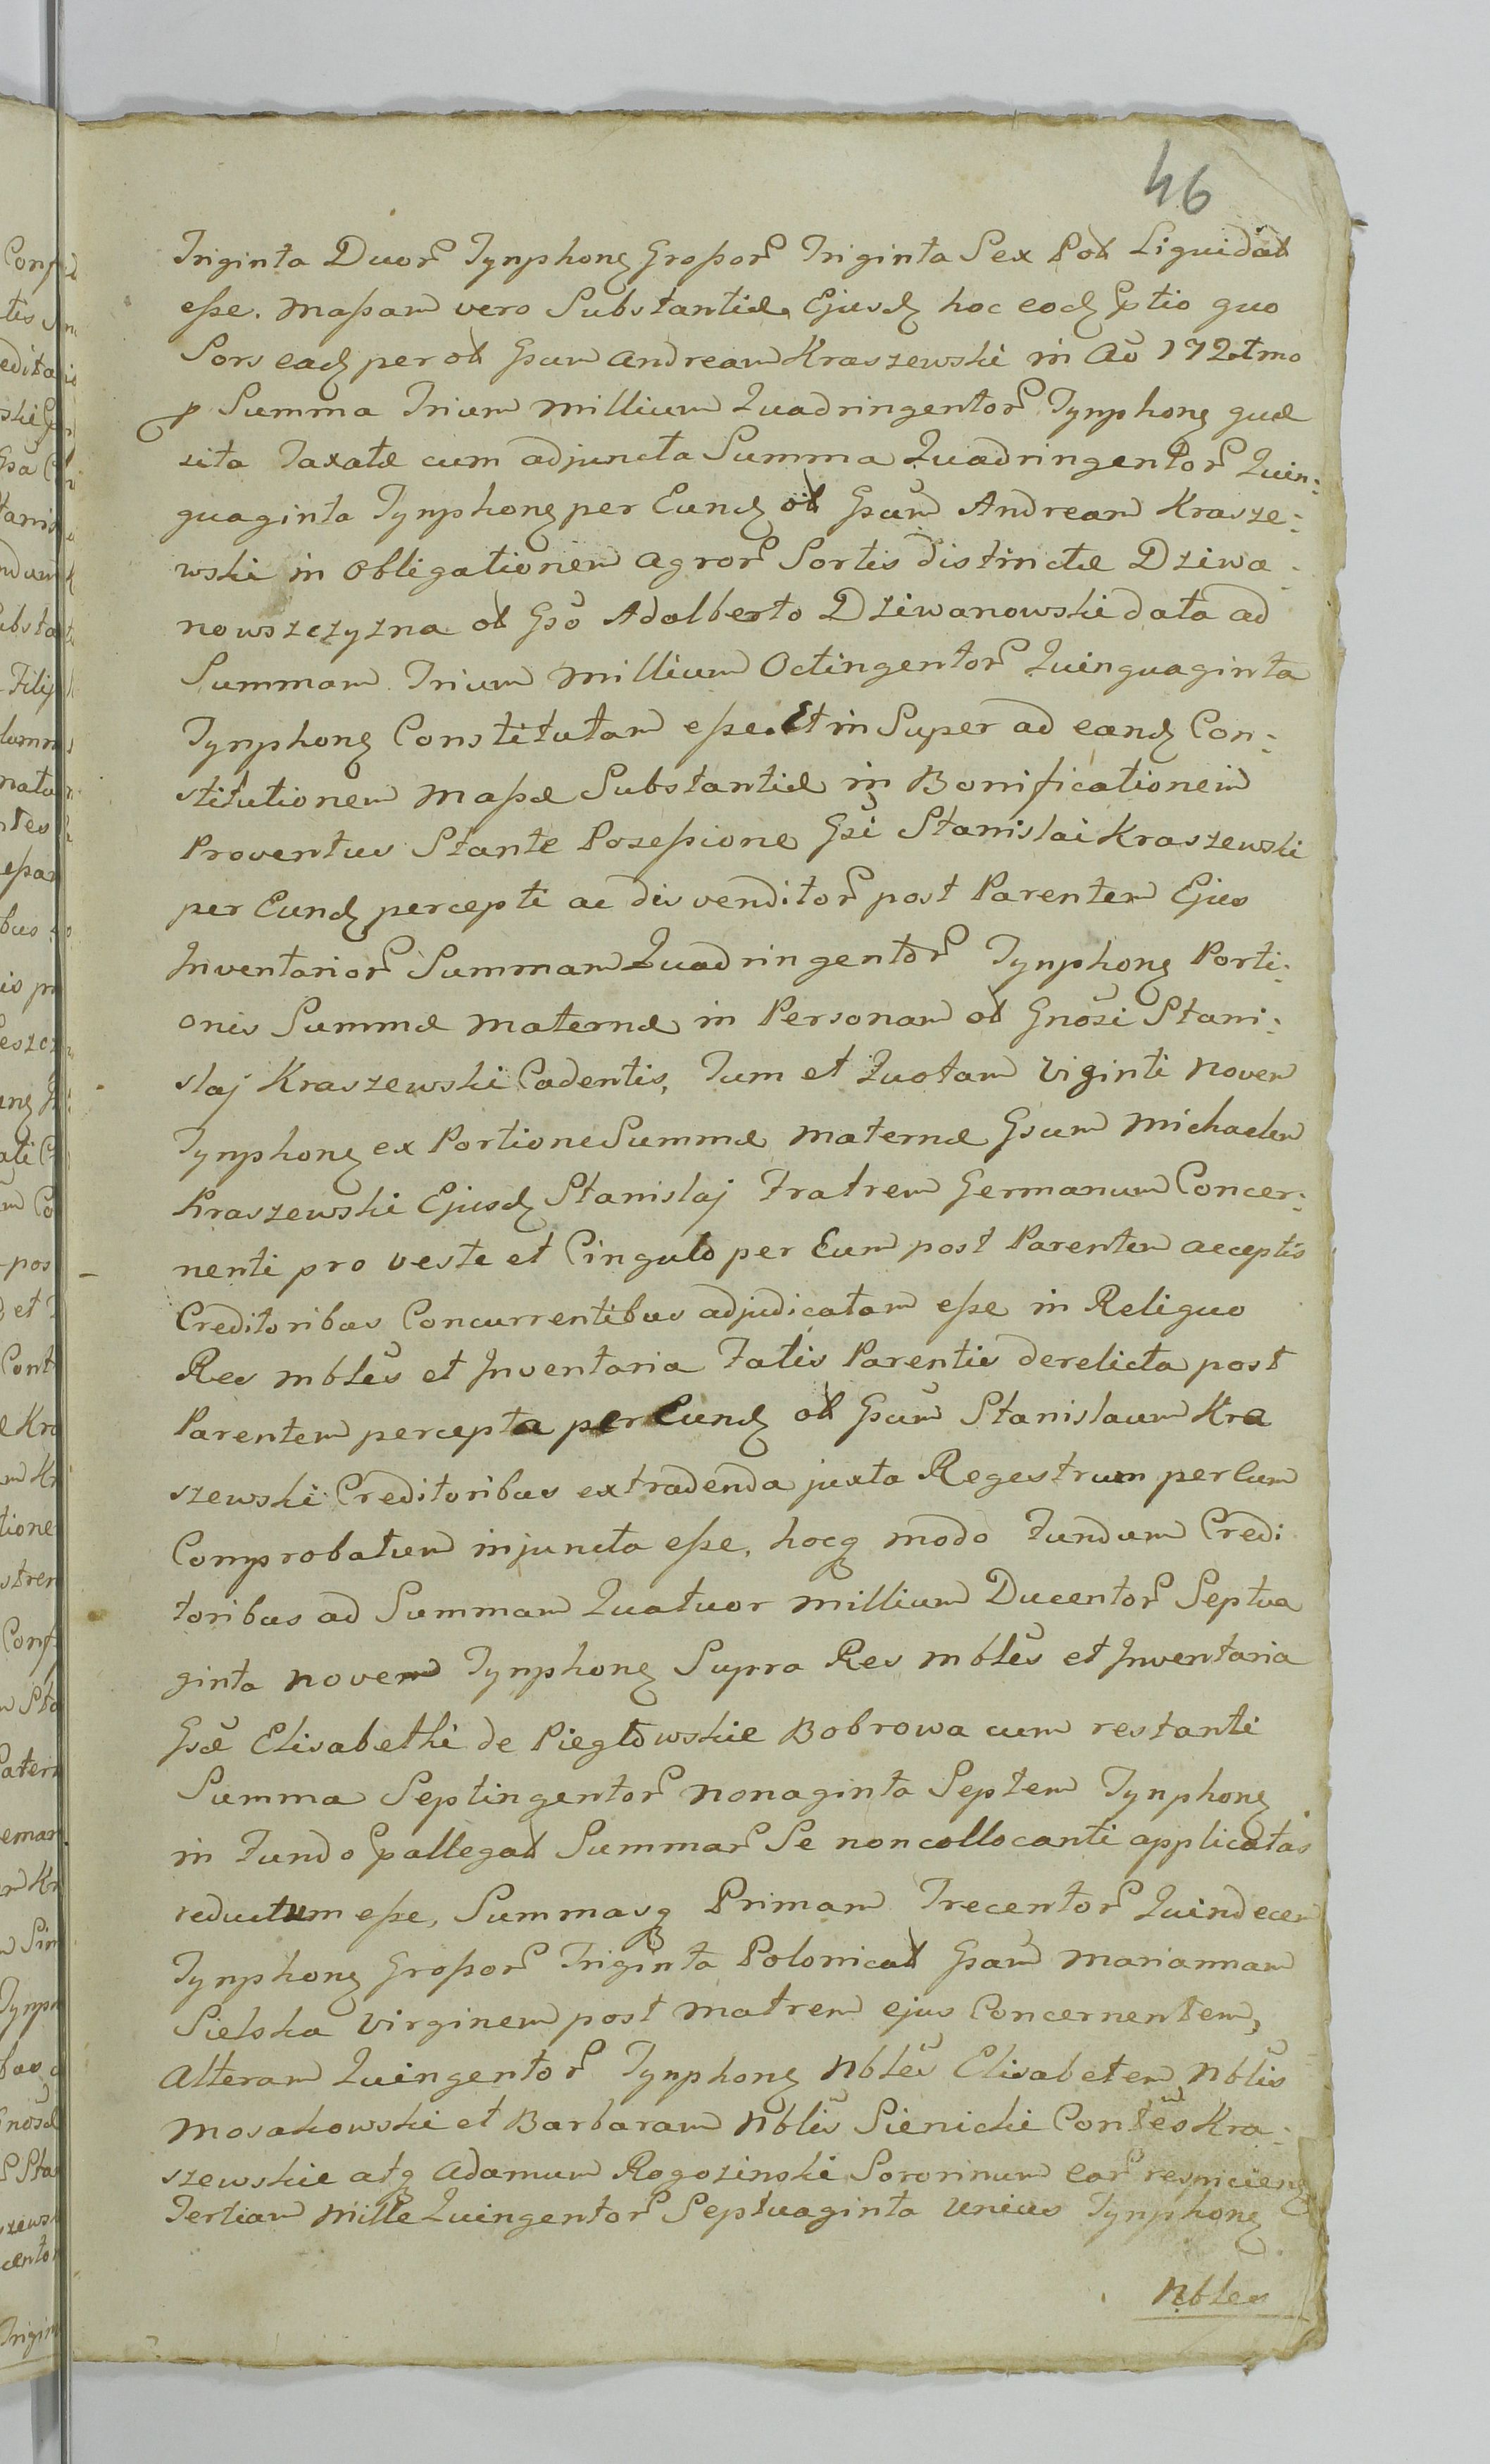 46
Triginta Duor Tynphonq Großor Triginta Sex Pol Liquidat
eße. Maßam vero Substantiæ Ejusd hoc eod ptio quo
Sors ead per ol Gsum Andream Kraszewski in Ao 172 tmo
p Summa Trium Millium Quadringentor Tynphonq quæ
sita Taxatæ cum adjuncta Summa Quadringentor Quin:
quaginta Tynphonq per Eund ol Gsum Andream Krasze:
wski in obligationem agror Sortis distinctæ Dziwa:
nowszczyzna ol Gso Adalberto Dziwanowski data ad
Summam Trium Millium Octingentor Quinquaginta
Tynphonq Constitutam eße. Et in Super ad eand Con:
stitutionem Maßæ Substantiæ in Bonificationem
Proventus Stante Poseßione Gsi Stanislai Kraszewski
per Eund percepti ac disvenditor post Parentem Ejus
Inventarior Summam Quadringentor Tynphonq Porti:
onis Summæ Maternæ in Personam ol Gnosi Stani:
slaj Kraszewski Cadentis, Tum et Quotam Viginti Novem
Tynphonq ex Portione Summæ Maternæ Gsum Michaelem
Kraszewski Ejusd Stanislaj Fratrem Germanum Concer:
nenti pro veste et Cingulo per Eum post Parentem acceptis
Creditoribus Concurrentibus adjudicatam eße in Reliquo
Res mbles et Inventaria Talis Parentis derelicta post
Parentem percepta per Eund ol Gsum Stanislaum Kra
szewski Creditoribus extradenda juxta Regestrum per Eum
Comprobatum injuncta eße, hocq modo Fundum Credi
toribus ad Summam Quatuor Millium Ducentor Septua
ginta Novem Tynphonq Supra Res mbles et Inventaria
Gsæ Elisabethi de Piegłowskie Bobrowa cum restanti
Summa Septingentor Nonaginta Septem Tynphonq
in Fundo pallegat Summar Se non collocanti applicatas
reductum eße, Summasq Primam Trecentor Quindecem
Tynphonq Großor Triginta Polonical Gsam Mariannam
Sielska Virginem post Matrem ejus Concernentem,
Alteram Quingentor Tynphonq Nbles Elisabetem Nblis
Mosakowski et Barbaram Nblis Sienicki Contes Kra:
szewskie atq Adamum Rogozinski Sororinum ear respicienq
Tertiam Mille Quingentor Septuaginta Unius Tynphonq
Nbles